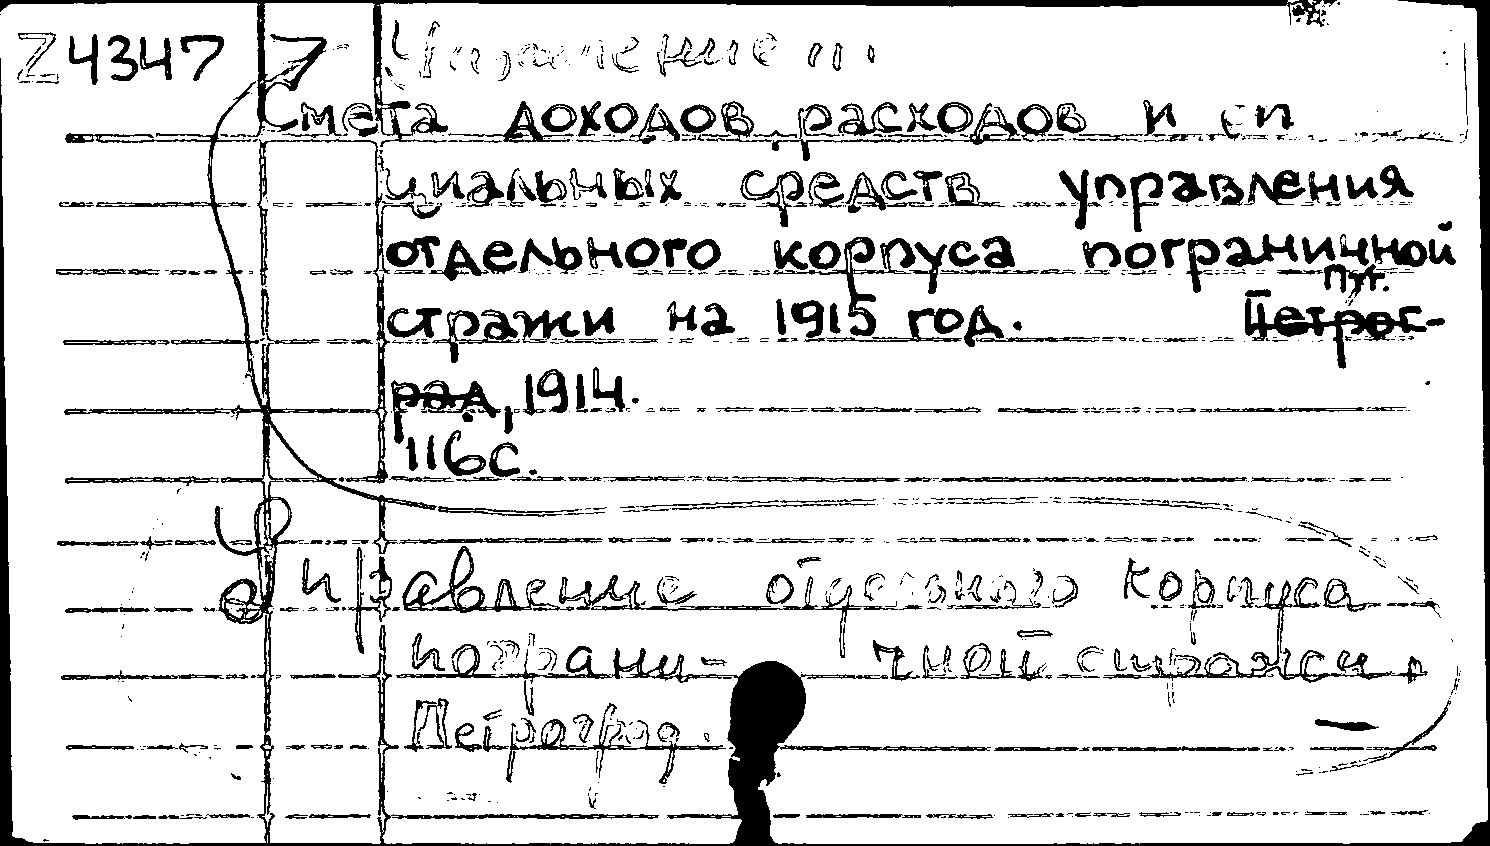 Z4347 Управление...
Смета доходов, расходов и сп
циальных средств управления
отдельного корпуса пограничной
Птг.
стражи на 1915 год. Петрог-
рад, 1914.
116с.
Управление отдельного корпуса
пограни- чной стражи,
Петроград.